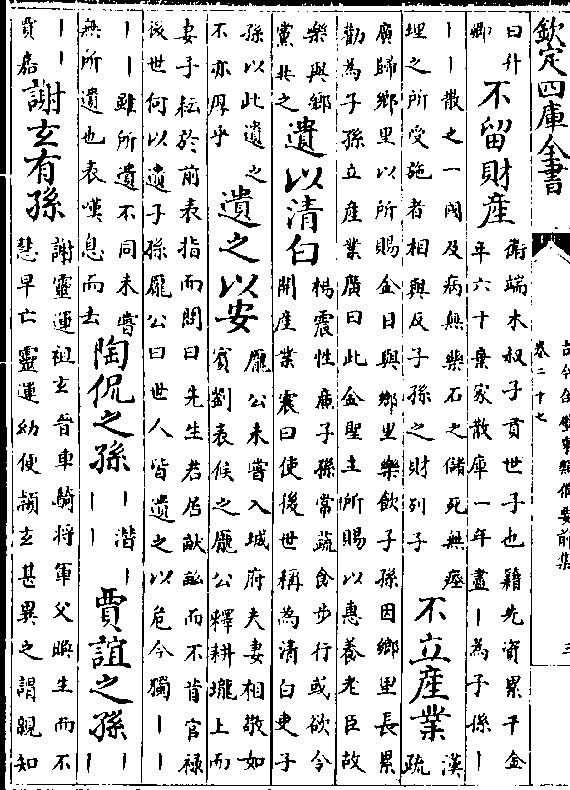 欽定四庫全書
古今合璧事類備要前集
卷二十七
三
曰升
卿
不留財產
衛端木叔子貢世子也藉先資累千金
年六十棄家散庫一年盡丨為子孫丨
丨丨散之一國及病無藥石之儲死無瘞
埋之所受施者相與反子孫之財列子
不立產業
漢
疏
廣歸鄉里以所賜金日與鄉里樂飲子孫因鄉里長累
勸為子孫立產業廣曰此金聖主所賜以惠養老臣故
樂與鄉
黨共之
遺以清白
楊震性廉子孫常蔬食步行或欲令
開產業震曰使後世稱為清白吏子
孫以此遺之
不亦厚乎
遺之以安
龐公未嘗入城府夫妻相敬如
賓劉表候之龐公釋耕壠上而
妻子耘於前表指而問曰先生若居畎畝而不肯官祿
後世何以遺子孫龐公曰世人皆遺之以危今獨丨丨
丨丨雖所遺不同未嘗
無所遺也表嘆息而去
陶侃之孫
丨潛丨
丨丨
賈誼之孫
丨丨
丨
丨丨
賈嘉
謝玄有孫
謝靈運祖玄晉車騎將軍父瑍生而不
慧早亡靈運幼便頴玄甚異之謂親知